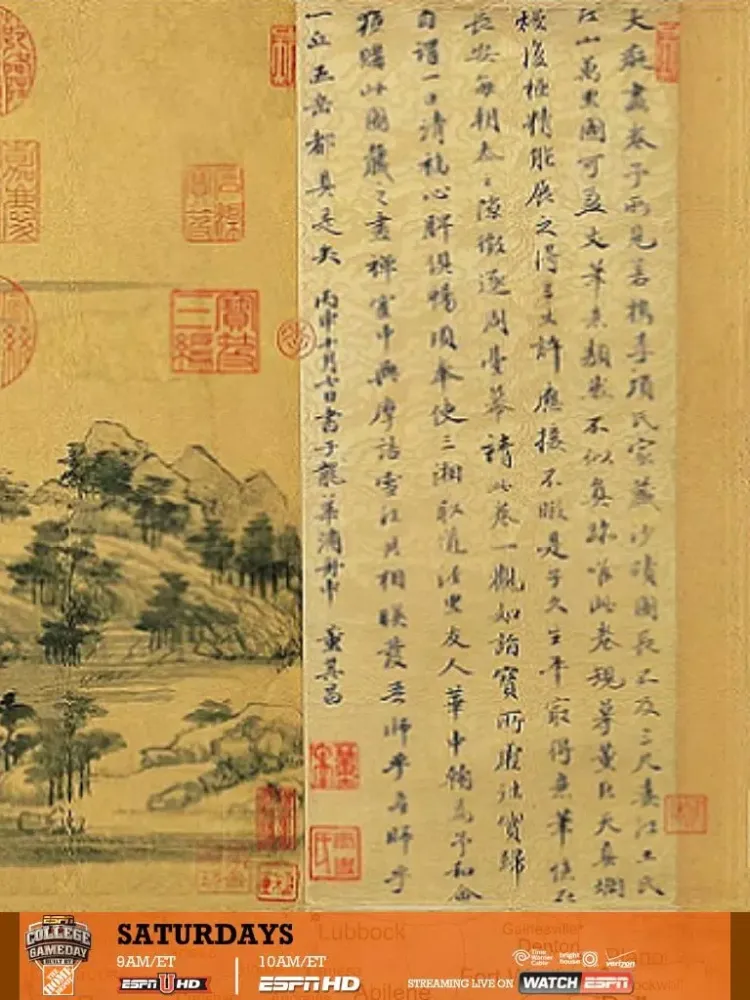 大癡畫卷予所見若檇李項氏家藏沙磧圖長不及三尺婁江王氏
江山萬里圖可盈丈筆意頹然不似真跡唯此卷規摹董巨天真爛
熳復極精能展之得三丈許應接不暇是子久生平最得意筆憶在
長安每朝參之隙徵逐周臺幕請此卷一觀如詣寶所虛往實歸
自謂一日清福心脾俱暢頃奉使三湘取道涇里友人華中翰為予和會
獲購此圖藏之畫禪室中與摩詰雪江共相映發吾師乎吾師乎
一丘五岳都具是矣 丙申十月七日書于龍華浦舟中 董其昌
寶笈三編
ESPN
COLLEGE GAMEDAY
BUILT BY
THE HOME DEPOT
SATURDAYS
9AM/ET
ESPNU HD
10AM/ET
ESPN HD
STREAMING LIVE ON
Time Warner Cable
bright house
verizon
WATCH ESPN
Lubbock
Gainesville
Denton
Abilene